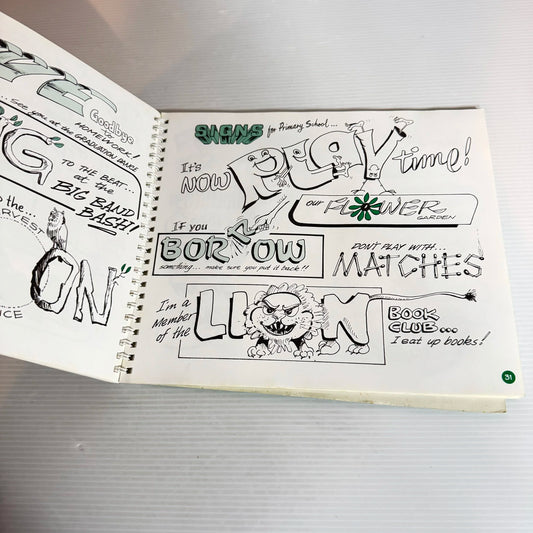 Goodbye
to
HOMEWORK!
SEE YOU AT THE GRADUATION DANCE
TO THE BEAT...
at the
BIG BAND
BASH!!
ON
SIGNS
for Primary School...
It's
NOW PLAY time!
OUR FLOWER
GARDEN
IF you
BORROW
something... make sure you put it back!!
DON'T PLAY WITH...
MATCHES
I'm a
Member
of the
LION
BOOK
CLUB...
I eat up books!
31